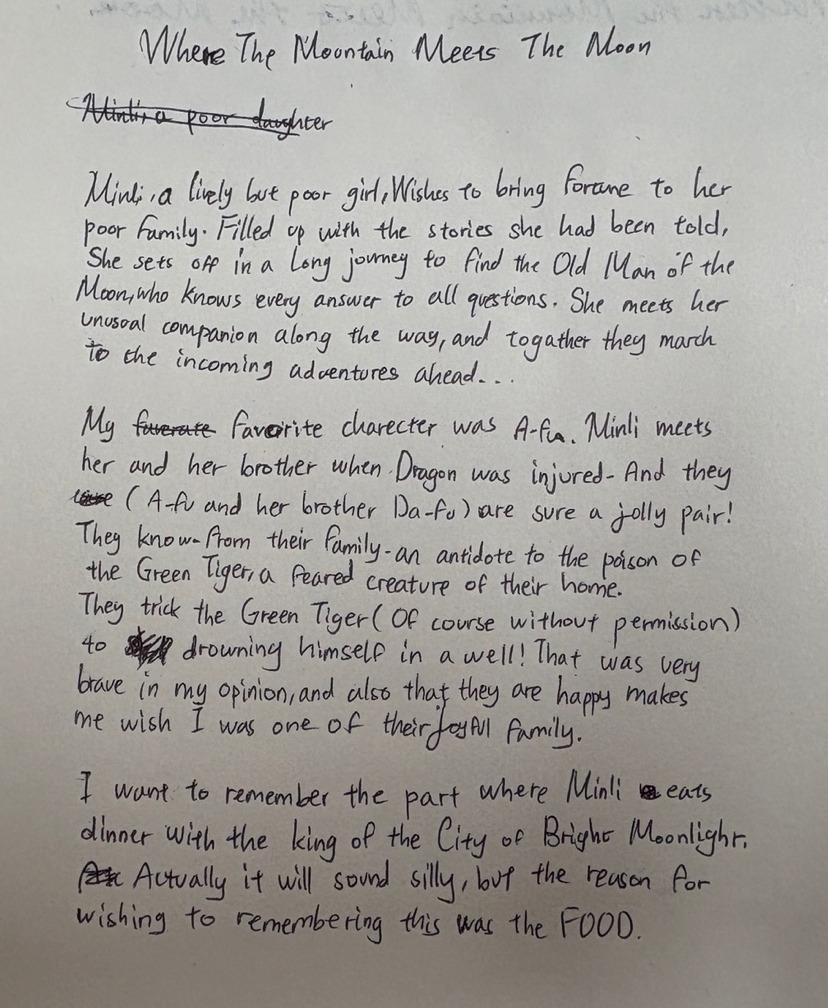 Where The Mountain Meets The Moon
Minli, a poor daughter
Minli, a lively but poor girl, Wishes to bring fortune to her
poor family. Filled up with the stories she had been told,
She sets off in a long journey to find the Old Man of the
Moon, who knows every answer to all questions. She meets her
unusual companion along the way, and togather they march
to the incoming adventures ahead...
My faverate favorite charecter was A-fu. Minli meets
her and her brother when Dragon was injured- And they
(A-fu and her brother Da-fu) are sure a jolly pair!
They know-from their family-an antidote to the poison of
the Green Tiger, a feared creature of their home.
They trick the Green Tiger (Of course without permission)
to drowning himself in a well! That was very
brave in my opinion, and also that they are happy makes
me wish I was one of their joyful family.
I want to remember the part where Minli eats
dinner with the king of the City of Bright Moonlight.
Actually it will sound silly, but the reason for
wishing to remembering this was the FOOD.